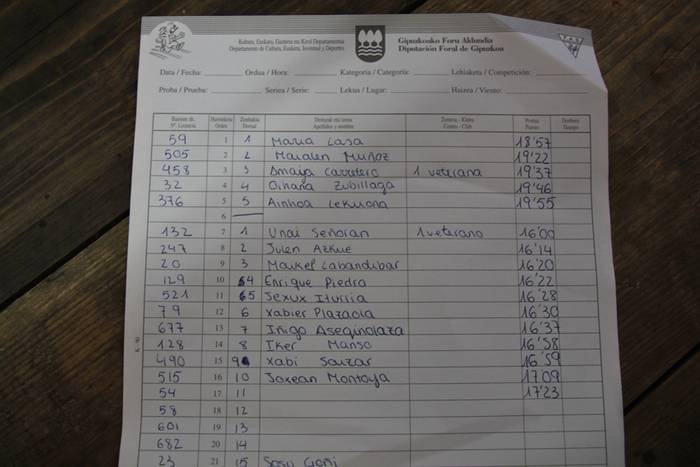 Kultura, Euskara, Gazteria eta Kirol Departamentua
Departamento de Cultura, Euskera, Juventud y Deportes
Gipuzkoako Foru Aldundia
Diputación Foral de Gipuzkoa
Data / Fecha: Ordua / Hora: Kategoria / Categoría: Lehiaketa / Competición:
Proba / Prueba: Seriea / Serie: Lekua / Lugar: Haizea / Viento:
Nº. Licencia Orden Dorsal Apellidos y nombre Centro - Club Puesto Tiempo
59 1 1 Maria Lasa 18'57
505 2 2 Maialen Muñoz 19'22
458 3 3 Amaya Carretero 1 veterana 19'37
32 4 4 Oihana Zubillaga 19'46
376 5 5 Ainhoa Lekuona 19'55
6
132 7 1 Unai Señoran 1 veterano 16'00
247 8 2 Julen Azkue 16'14
20 9 3 Maikel Labandibar 16'20
129 10 4 Enrique Piedra 16'22
521 11 5 Sexux Iturria 16'28
79 12 6 Xabier Plazaola 16'30
677 13 7 Iñigo Aseginolaza 16'37
128 14 8 Iker Manso 16'58
490 15 9 Xabi Saizar 16'59
515 16 10 Joxean Montoya 17'09
54 17 11 17'23
58 18 12
601 19 13
682 20 14
23 21 15 Goñi